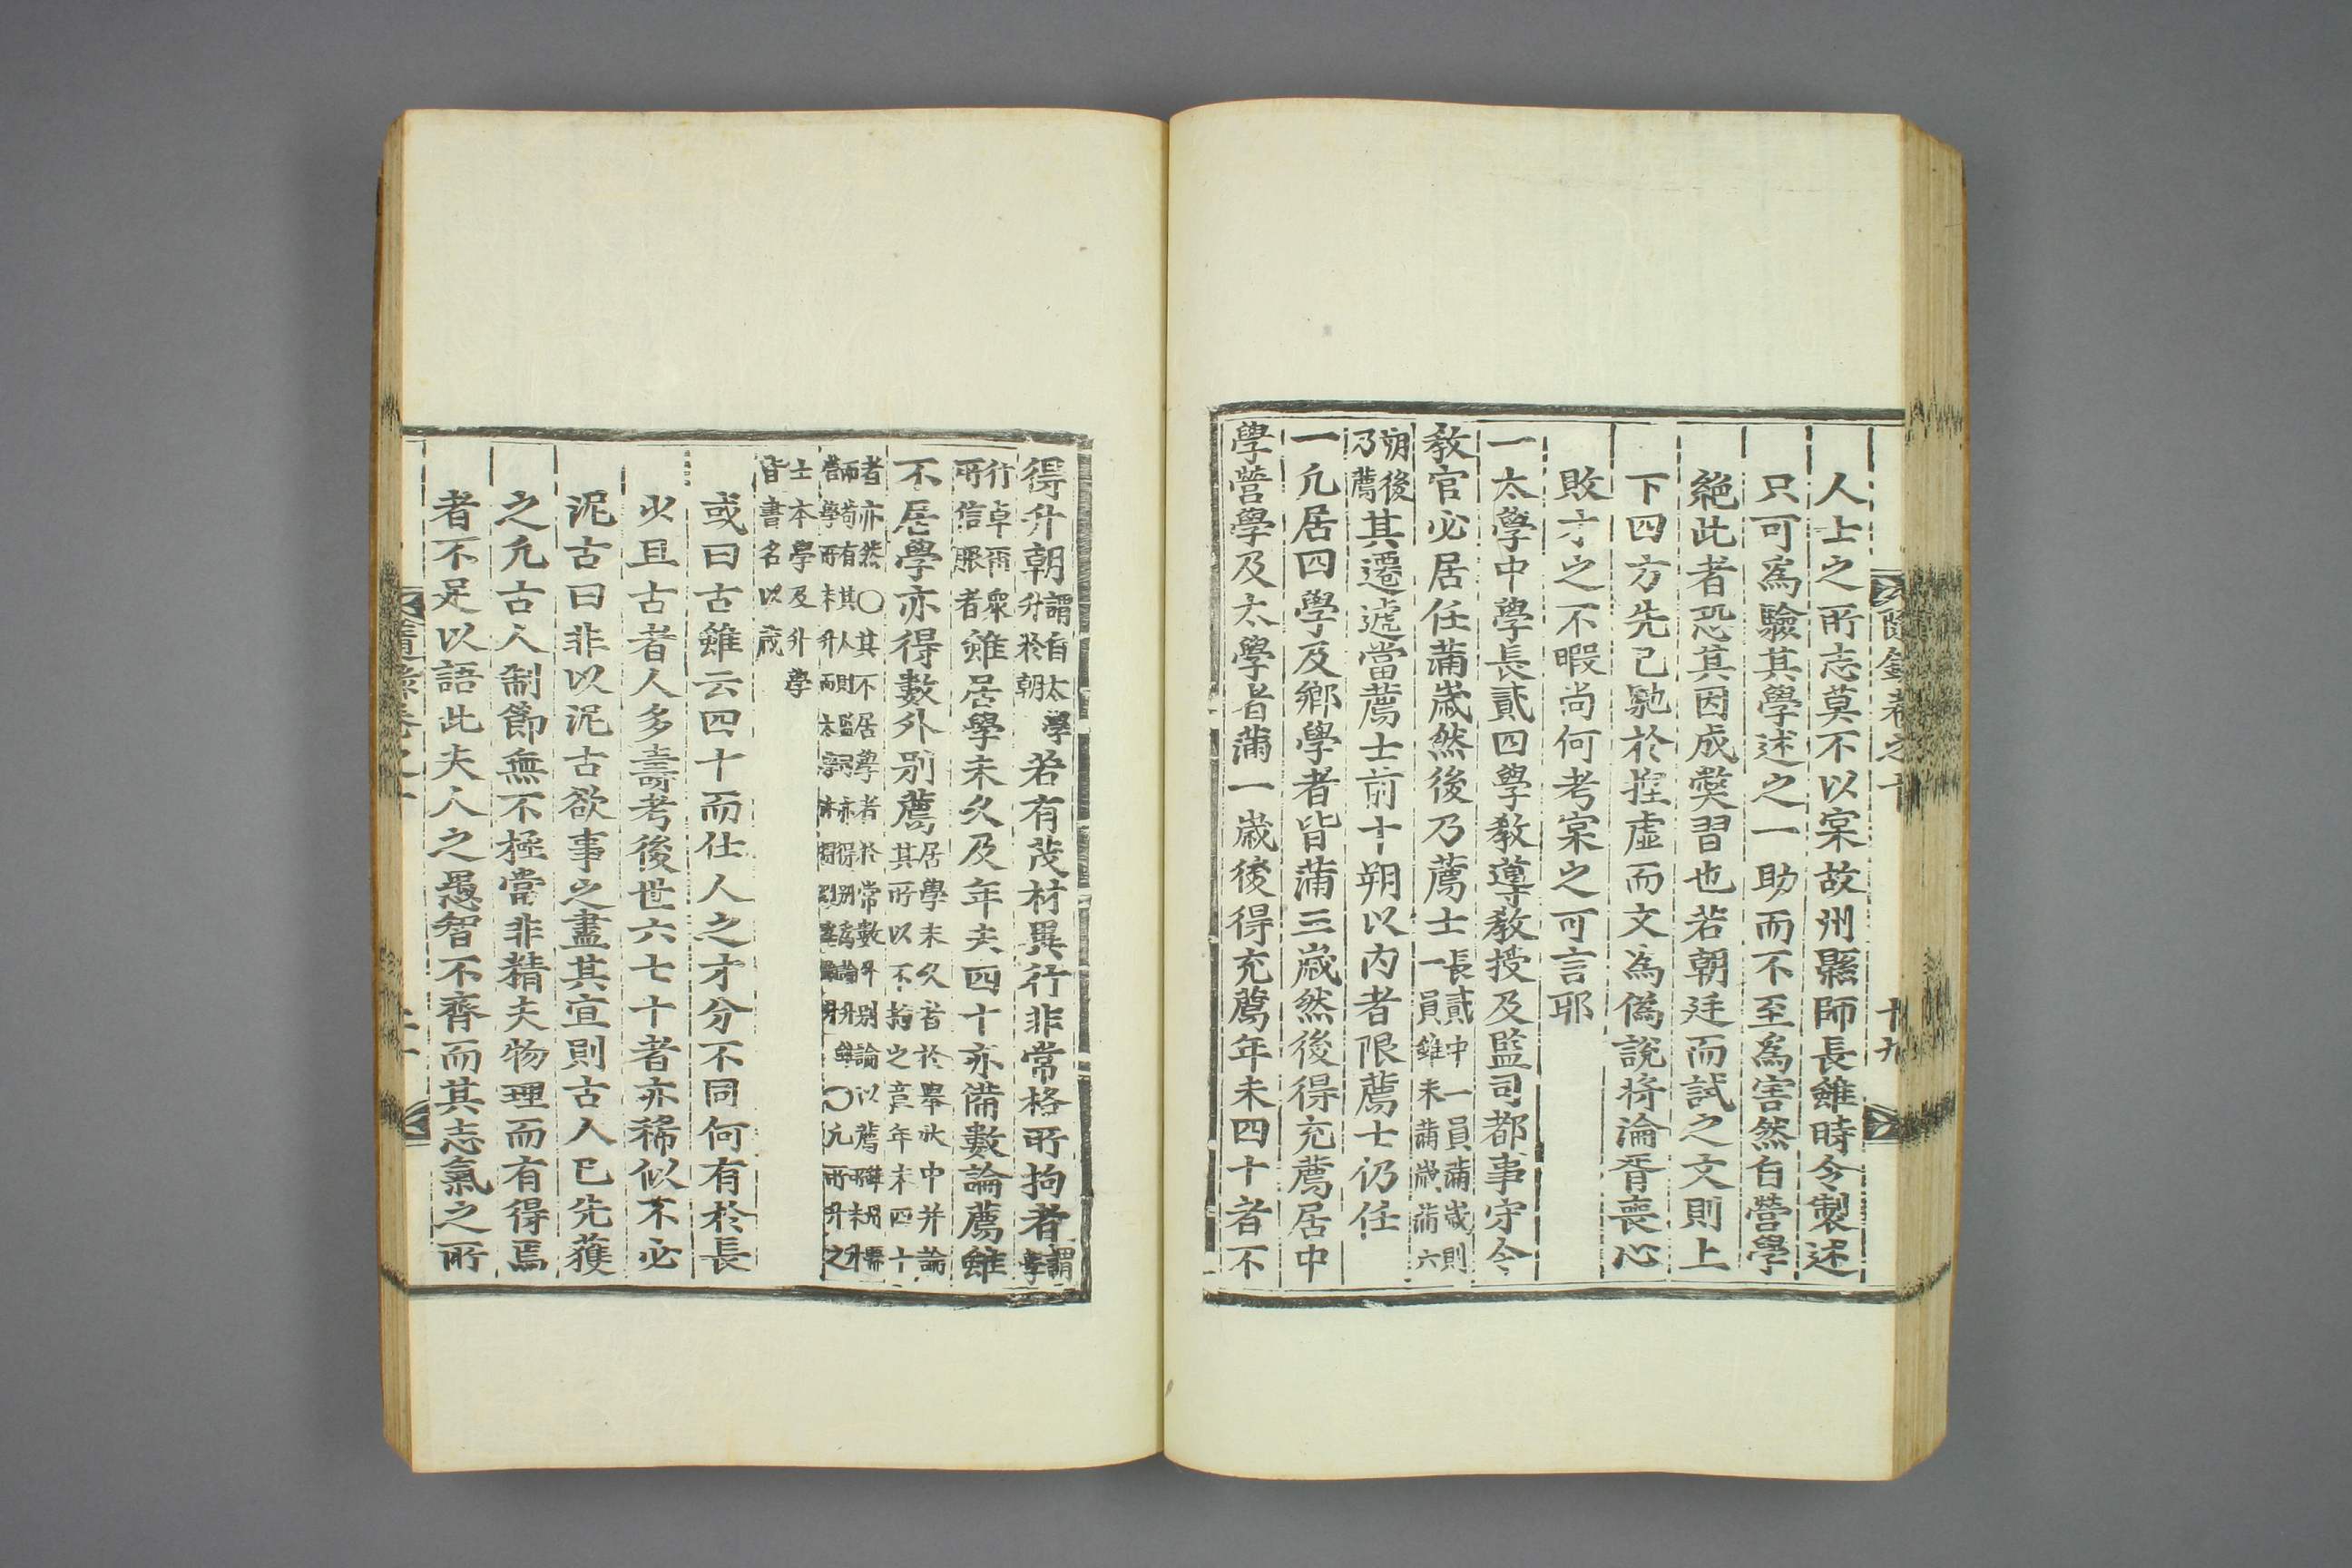 人士之所志莫不以寀故州縣師長雖時令製述
只可爲驗其學述之一助而不至爲害然自營學
絶此者恐其因成獘習也若朝廷而試之文則上
下四方先已馳於捏虛而文爲僞說將淪胥喪心
敗才之不暇尚何考寀之可言耶
一太學中學長貳四學敎導敎授及監司都事守令
敎官必居任滿歲然後乃薦士長貳中一員滿歲則一員雖未滿歲滿六
朔後乃薦其遷遞當薦士前十朔以內者限薦士仍任
一凡居四學及鄕學者皆滿三歲然後得充薦居中
學營學及太學者滿一歲後得充薦年未四十者不
十九
得升朝謂自太學升於朝若有茂材異行非常格所拘者謂學
行卓爾衆所信服者雖居學未久及年夫四十亦備數論薦雖
不居學亦得數外別薦居學未久者於舉狀中并論其所以不拘之意年未四十
者亦然〇其不居學者於常數外別論以薦
士本學及升學皆書名以歲
或曰古雖云四十而仕人之才分不同何有於長
少且古者人多壽考後世六七十者亦稀似不必
泥古曰非以泥古欲事之盡其宜則古人已先獲
之凡古人制節無不極當非精夫物理而有得焉
者不足以語此夫人之愚智不齊而其志氣之所